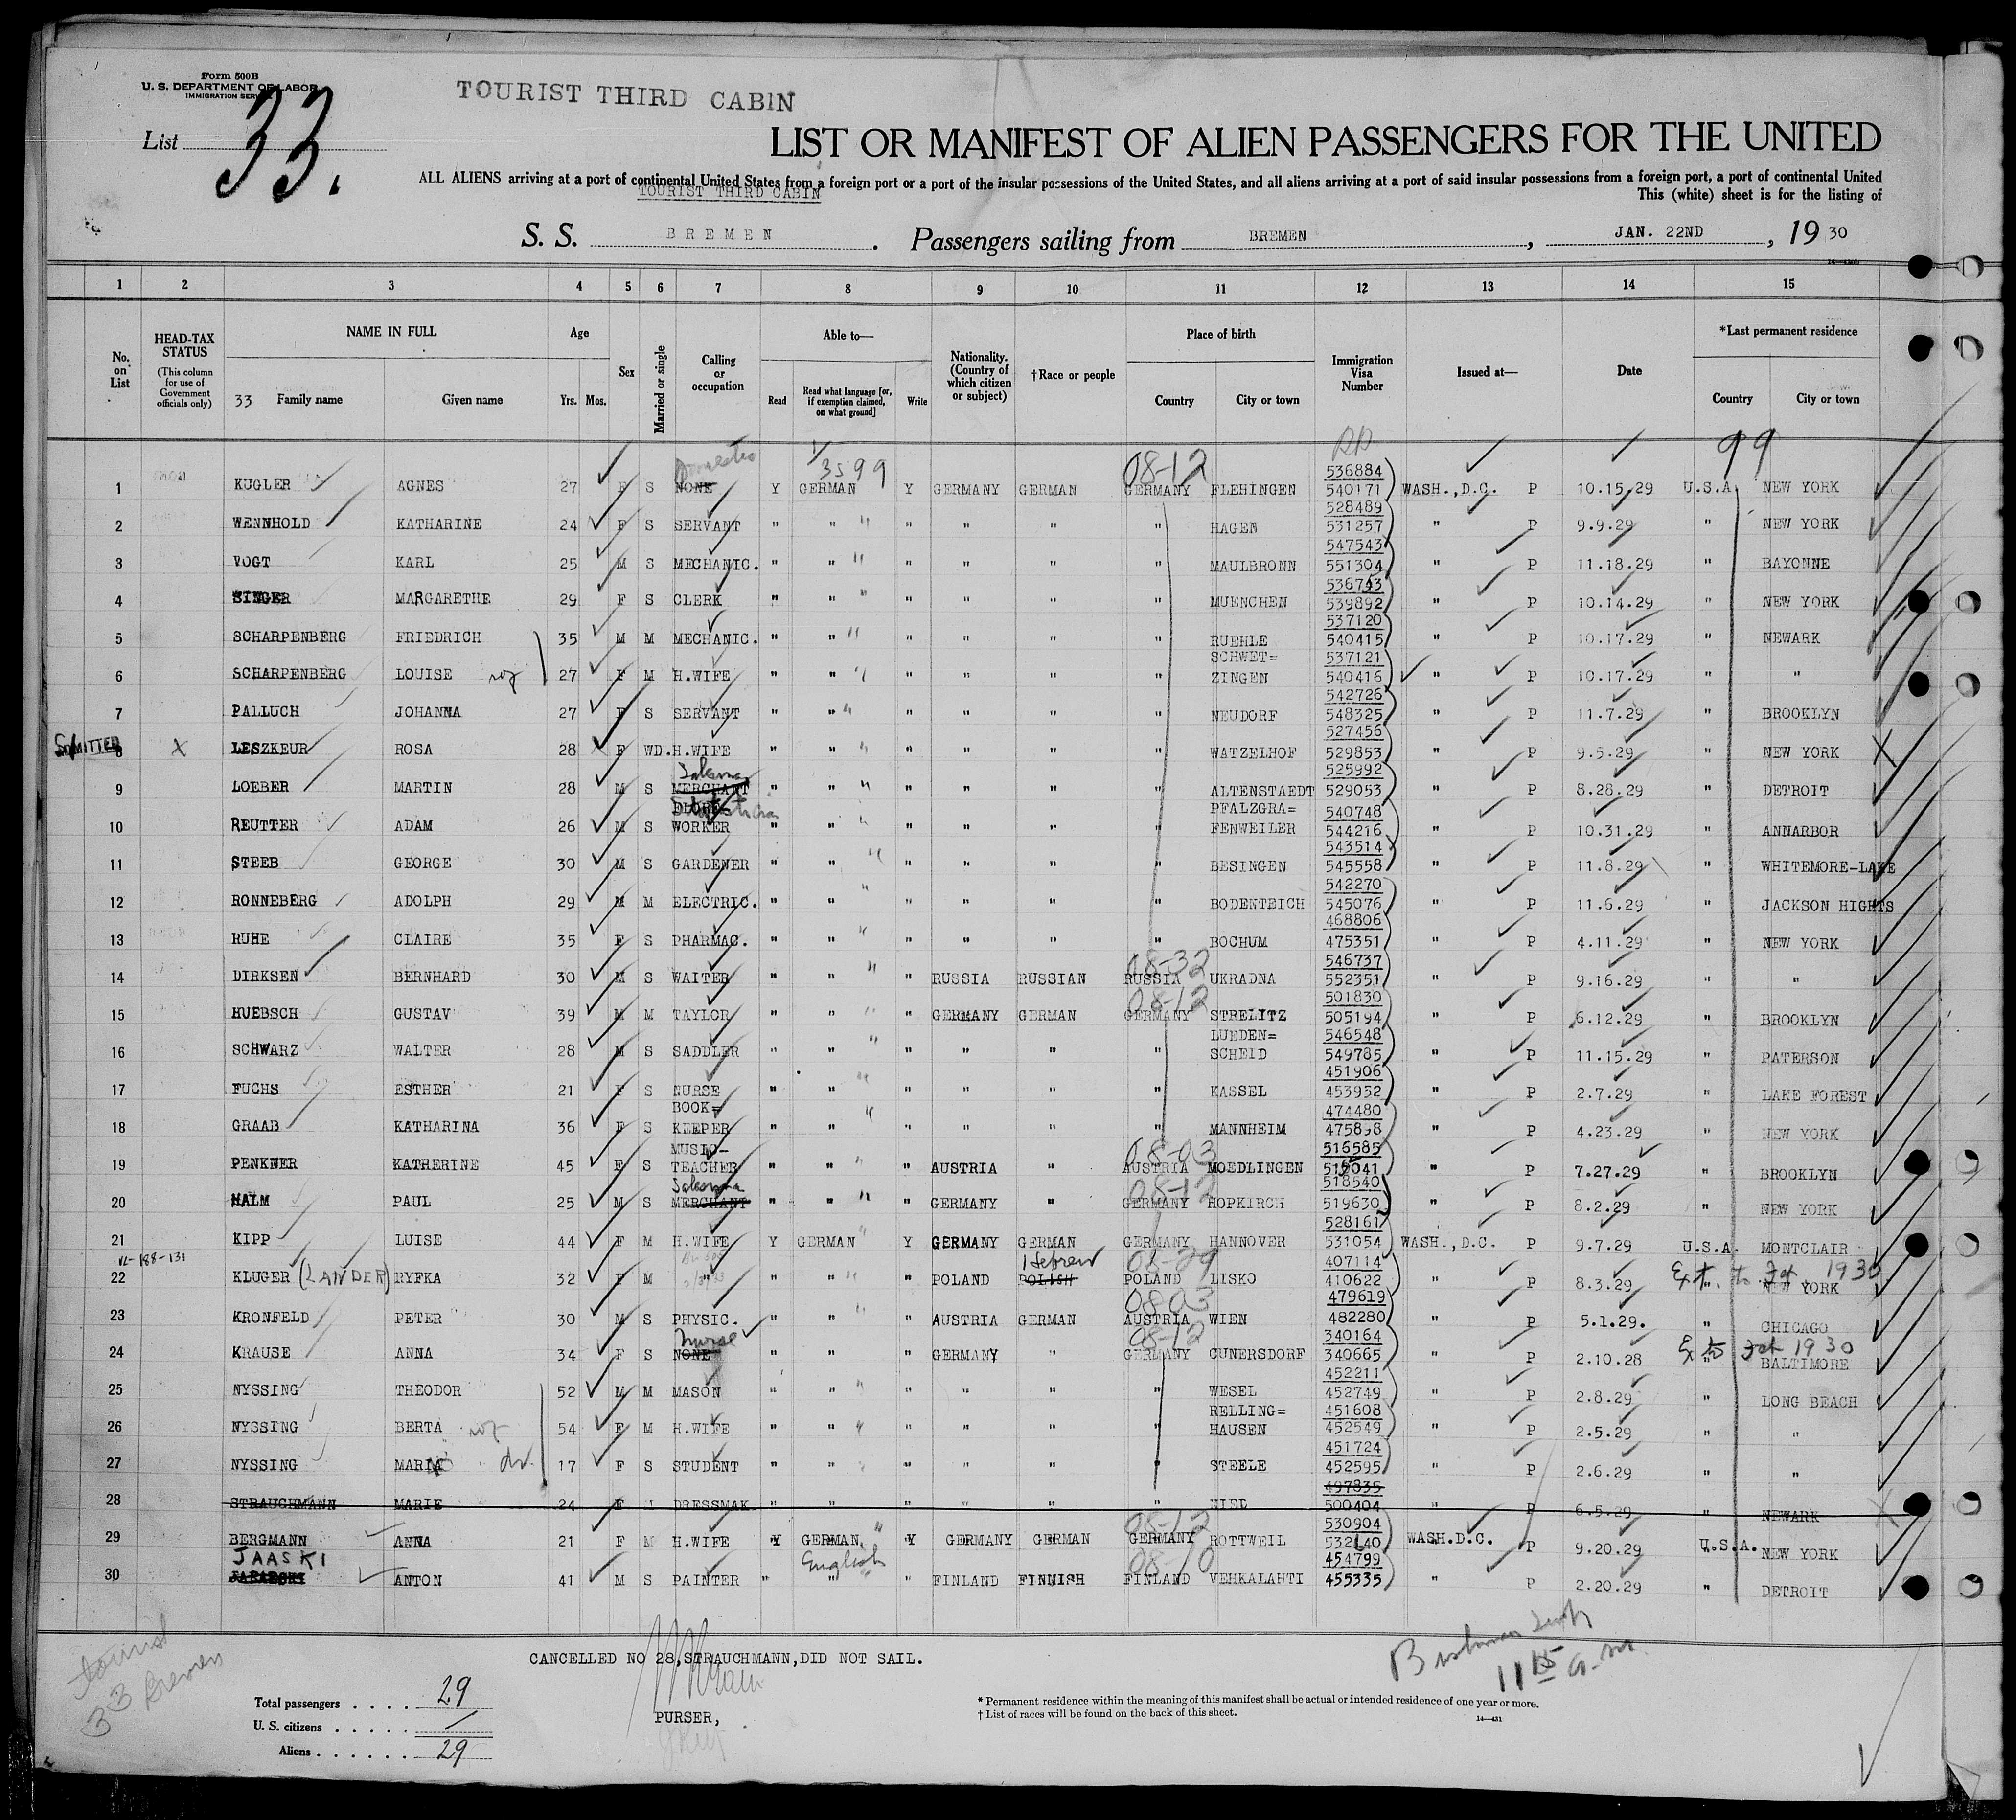 Form 500B
U. S. DEPARTMENT OF LABOR
IMMIGRATION SERVICE
TOURIST THIRD CABIN
List 33.
LIST OR MANIFEST OF ALIEN PASSENGERS FOR THE UNITED
ALL ALIENS arriving at a port of continental United States from a foreign port or a port of the insular possessions of the United States, and all aliens arriving at a port of said insular possessions from a foreign port, a port of continental United
TOURIST THIRD CABIN
This (white) sheet is for the listing of
S. S. BREMEN . Passengers sailing from BREMEN , JAN. 22ND , 19 30
1 2 3 4 5 6 7 8 9 10 11 12 13 14 15
No. on List
HEAD-TAX STATUS
(This column for use of Government officials only)
NAME IN FULL
33 Family name Given name
Age
Yrs. Mos.
Sex
Married or single
Calling or occupation
Able to—
Read Read what language [or, if exemption claimed, on what ground] Write
Nationality. (Country of which citizen or subject)
†Race or people
Place of birth
Country City or town
Immigration Visa Number
Issued at—
Date
*Last permanent residence
Country City or town
Domestic 3599 08-12 536884 99
1 KUGLER AGNES 27 F S NONE Y GERMAN Y GERMANY GERMAN GERMANY FLEHINGEN 540171 WASH.,D.C. P 10.15.29 U.S.A. NEW YORK
528489
2 WENNHOLD KATHARINE 24 F S SERVANT " " " " " " HAGEN 531257 " P 9.9.29 " NEW YORK
547543
3 VOGT KARL 25 M S MECHANIC. " " " " " " MAULBRONN 551304 " P 11.18.29 " BAYONNE
536743
4 SINGER MARGARETHE 29 F S CLERK " " " " " " MUENCHEN 539892 " P 10.14.29 " NEW YORK
537120
5 SCHARPENBERG FRIEDRICH 35 M M MECHANIC. " " " " " " RUEHLE 540415 " P 10.17.29 " NEWARK
SCHWET= 537121
6 SCHARPENBERG LOUISE wf 27 F M H.WIFE " " " " " " ZINGEN 540416 " P 10.17.29 " "
542726
7 PALLUCH JOHANNA 27 F S SERVANT " " " " " " NEUDORF 548325 " P 11.7.29 " BROOKLYN
527456
ADMITTED 8 X LESZKEUR ROSA 28 F WD. H.WIFE " " " " " " WATZELHOF 529853 " P 9.5.29 " NEW YORK X
525992
9 LOEBER MARTIN 28 M S MERCHANT " " " " " " ALTENSTAEDT 529053 " P 8.28.29 " DETROIT
PFALZGRA= 540748
10 REUTTER ADAM 26 M S WORKER " " " " " " FENWEILER 544216 " P 10.31.29 " ANNARBOR
543514
11 STEEB GEORGE 30 M S GARDENER " " " " " " BESINGEN 545558 " P 11.8.29 " WHITEMORE-LAKE
542270
12 RONNEBERG ADOLPH 29 M M ELECTRIC. " " " " " " BODENTEICH 545076 " P 11.6.29 " JACKSON HIGHTS
468806
13 RUHE CLAIRE 35 F S PHARMAC. " " " " " " BOCHUM 475351 " P 4.11.29 " NEW YORK
08-32 546737
14 DIRKSEN BERNHARD 30 M S WAITER " " " RUSSIA RUSSIAN RUSSIA UKRADNA 552351 " P 9.16.29 " "
08-12 501830
15 HUEBSCH GUSTAV 39 M M TAYLOR " " " GERMANY GERMAN GERMANY STRELITZ 505194 " P 6.12.29 " BROOKLYN
LUEDEN= 546548
16 SCHWARZ WALTER 28 M S SADDLER " " " " " " SCHEID 549785 " P 11.15.29 " PATERSON
451906
17 FUCHS ESTHER 21 F S NURSE " " " " " " KASSEL 453932 " P 2.7.29 " LAKE FOREST
BOOK= 474480
18 GRAAB KATHARINA 36 F S KEEPER " " " " " " MANNHEIM 475898 " P 4.23.29 " NEW YORK
MUSIC- 08-03 516585
19 PENKNER KATHERINE 45 F S TEACHER " " " AUSTRIA " AUSTRIA MOEDLINGEN " P 7.27.29 " BROOKLYN
08-12 518540
20 HALM PAUL 25 M S MERCHANT " " " GERMANY " GERMANY HOPKIRCH 519630 " P 8.2.29 " NEW YORK
528161
21 KIPP LUISE 44 F M H.WIFE Y GERMAN Y GERMANY GERMAN GERMANY HANNOVER 531054 WASH.,D.C. P 9.7.29 U.S.A. MONTCLAIR
188-131 Hebrew 08-29 407114 Ext. to 1930
22 KLUGER (LANDER) RYFKA 32 F M " " " " POLAND POLISH POLAND LISKO 410622 " P 8.3.29 " NEW YORK
0803 479619
23 KRONFELD PETER 30 M S PHYSIC. " " " AUSTRIA GERMAN AUSTRIA WIEN 482280 " P 5.1.29. " CHICAGO
Nurse 08-12 340164 1930
24 KRAUSE ANNA 34 F S NONE " " " GERMANY " GERMANY CUNERSDORF 340665 " P 2.10.28 " BALTIMORE
452211
25 NYSSING THEODOR 52 M M MASON " " " " " " WESEL 452749 " P 2.8.29 " LONG BEACH
RELLING= 451608
26 NYSSING BERTA wf 54 F M H.WIFE " " " " " " HAUSEN 452549 " P 2.5.29 " "
451724
27 NYSSING MARIA 17 F S STUDENT " " " " " " STEELE 452595 " P 2.6.29 " "
497835
28 STRAUCHMANN MARIE 24 F DRESSMAK. " " " " " " NIED 500404 " P 6.5.29 " NEWARK X
08-12 530904
29 BERGMANN ANNA 21 F M H.WIFE Y GERMAN, Y GERMANY GERMAN GERMANY ROTTWEIL 532140 WASH.D.C. P 9.20.29 U.S.A. NEW YORK
JAASKI English 08-10 454799
30 ANTON 41 M S PAINTER " " " FINLAND FINNISH FINLAND VEHKALAHTI 455335 " P 2.20.29 " DETROIT
CANCELLED NO 28,STRAUCHMANN,DID NOT SAIL.
PURSER,
11 15 a.m.
33 Bremen
Total passengers . . . . 29
U. S. citizens . . . . . /
Aliens . . . . . . 29
* Permanent residence within the meaning of this manifest shall be actual or intended residence of one year or more.
† List of races will be found on the back of this sheet.
14—431